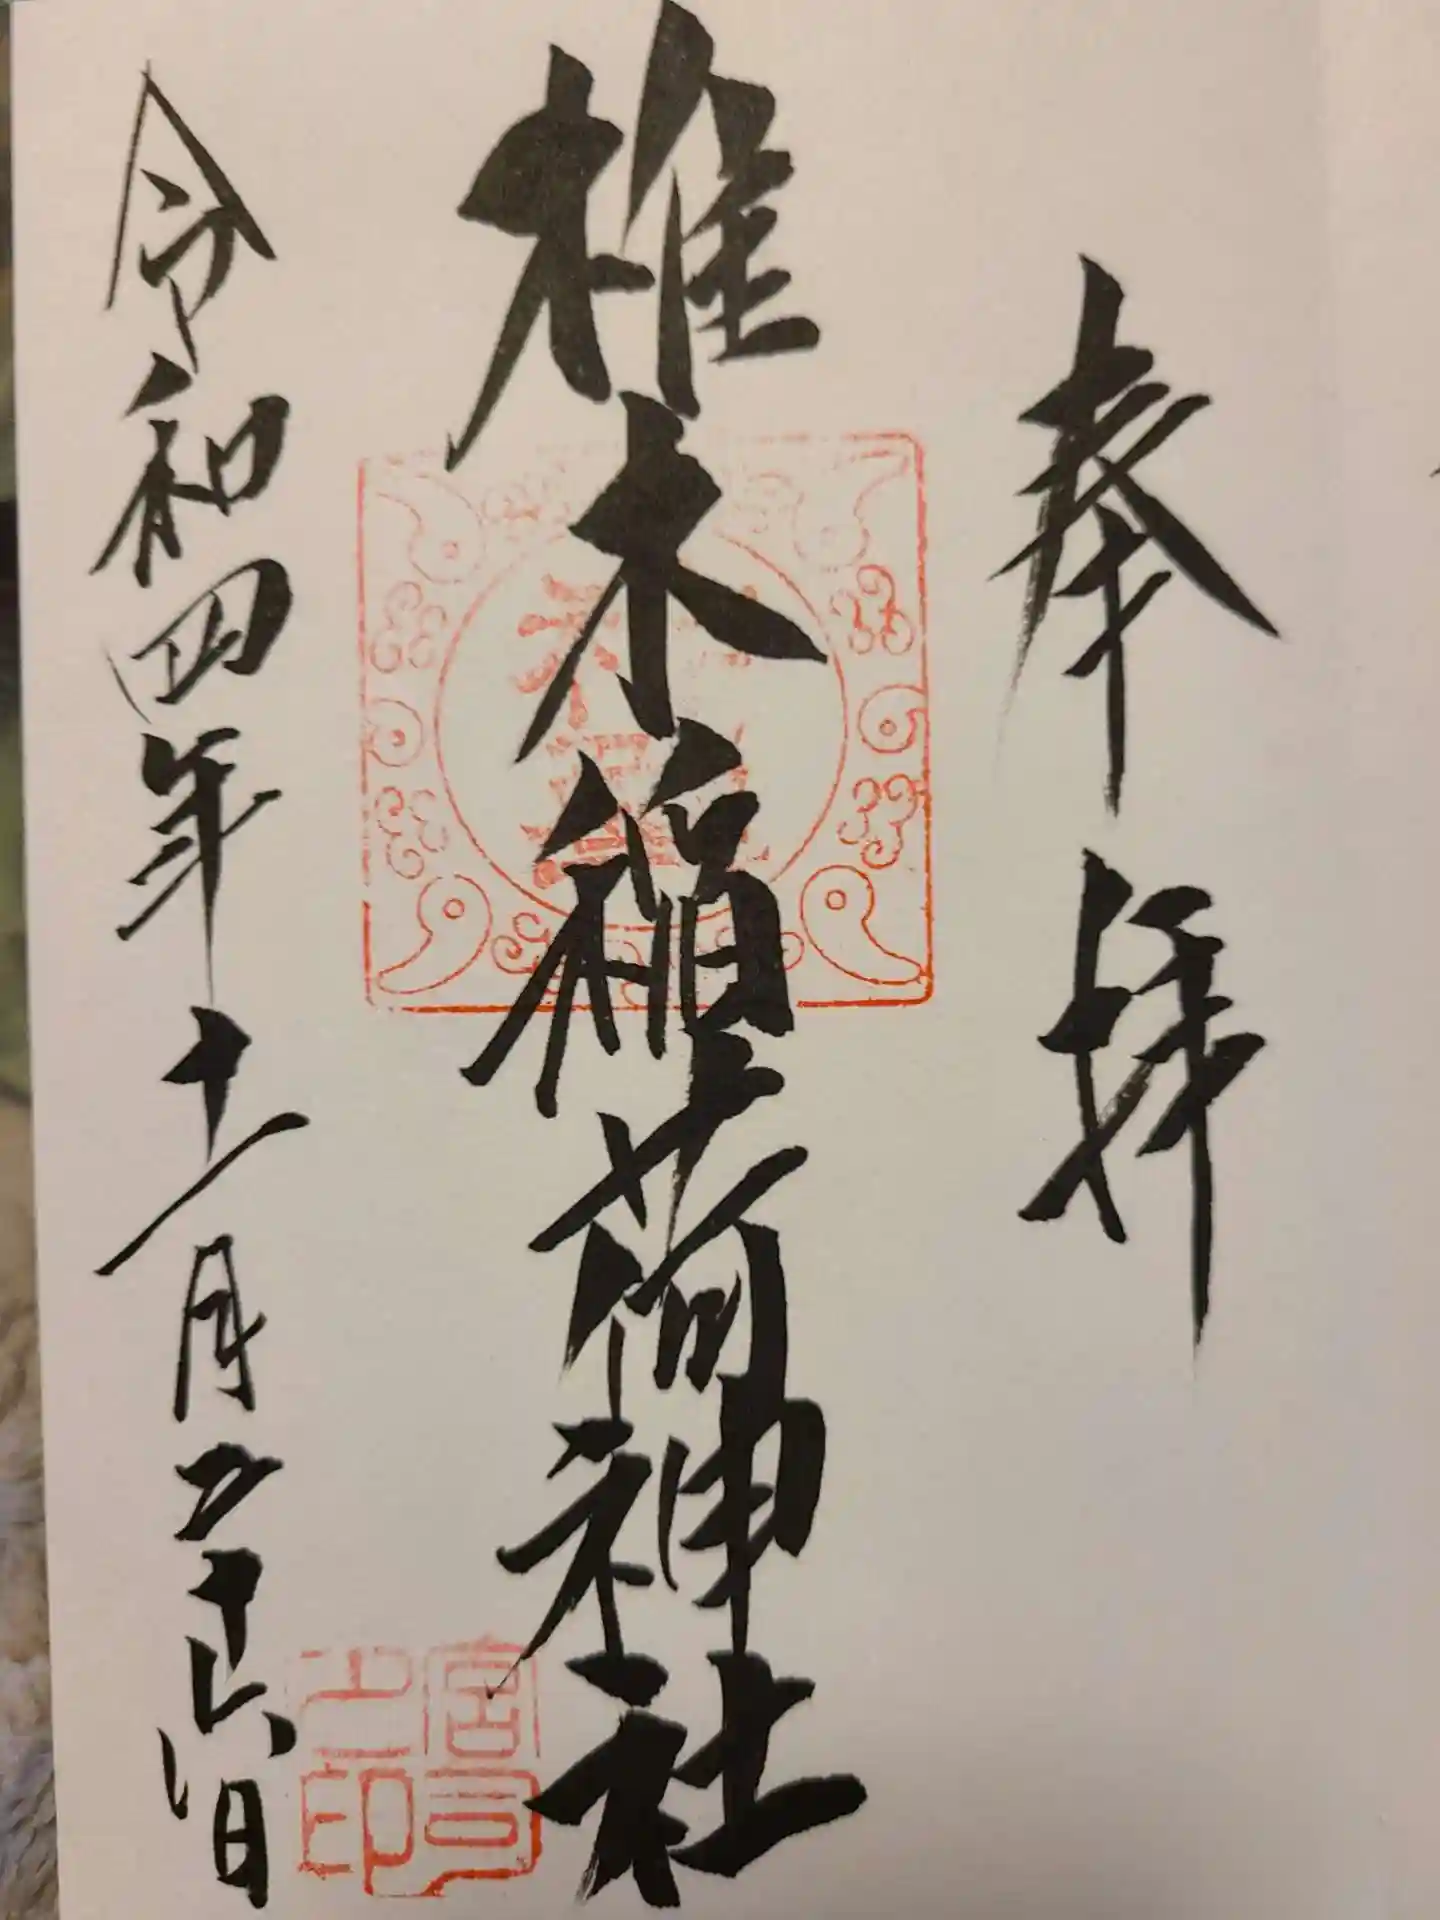 奉拝
椎木稲荷神社
令和四年十一月二十六日
宮司之印